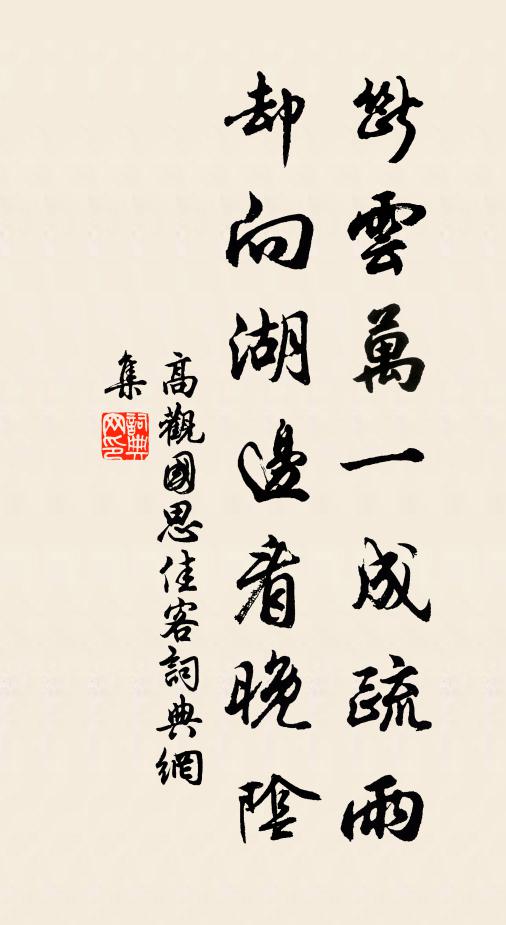 斷雲萬一成疏雨
却向湖邊看晚陰
高觀國思佳客詞典網
集
詞典網印